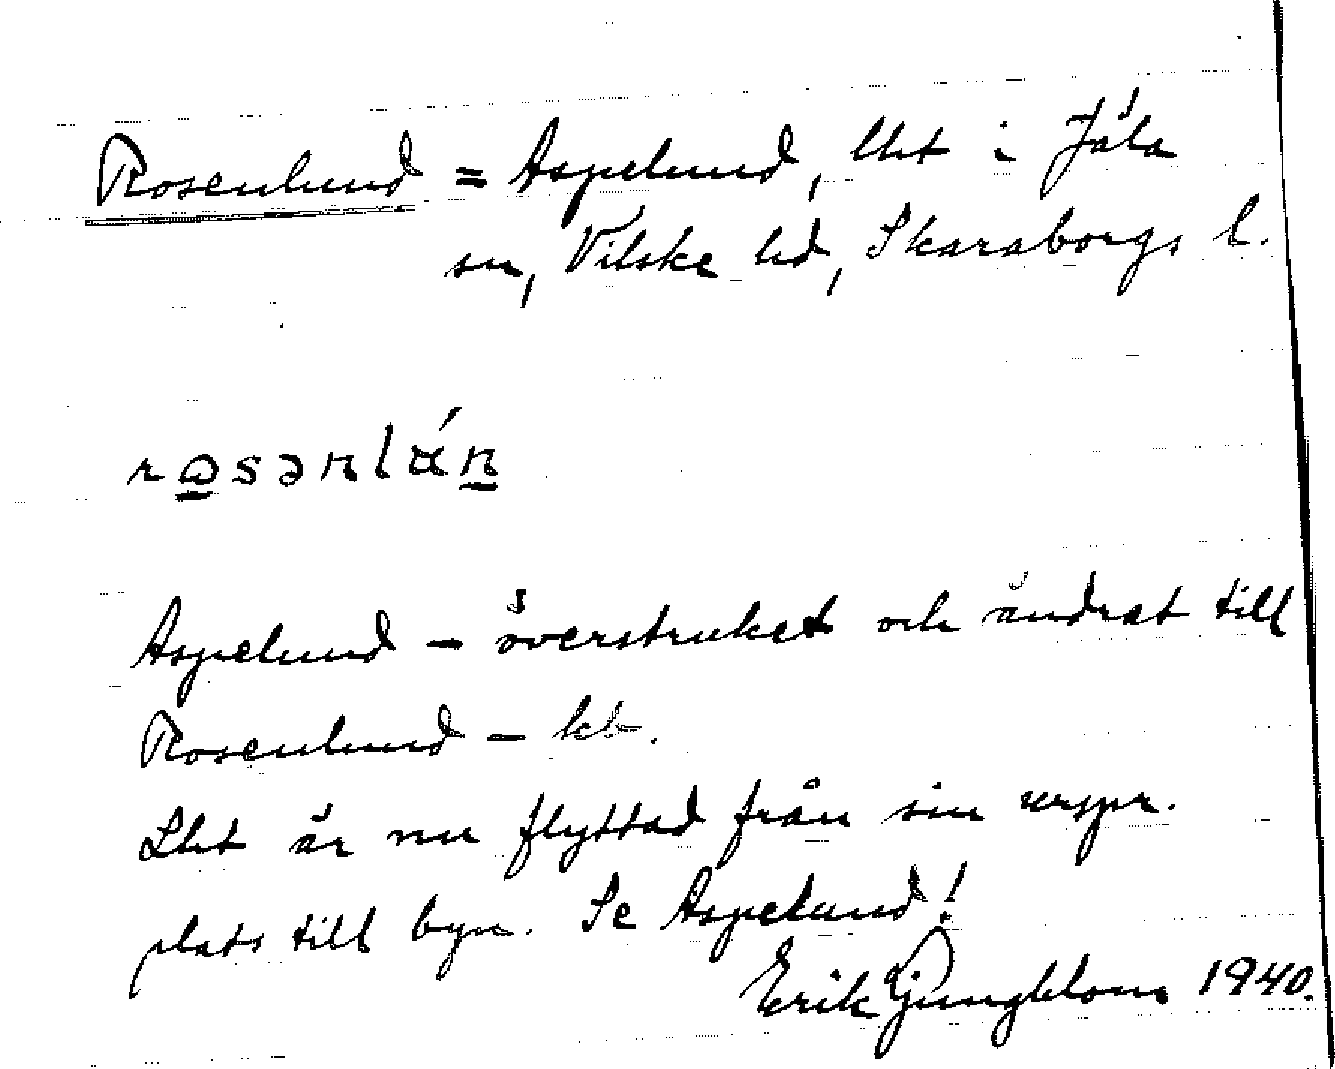 Rosenlund = Aspelund, lht i Jäla
sn, Vilske hd, Skaraborgs l.
Aspelund – överstruket och ändrat till
Rosenlund – kb.
Lht är nu flyttad från sin urspr.
plats till byn. Se Aspelund!
Erik Ljungblom 1940.